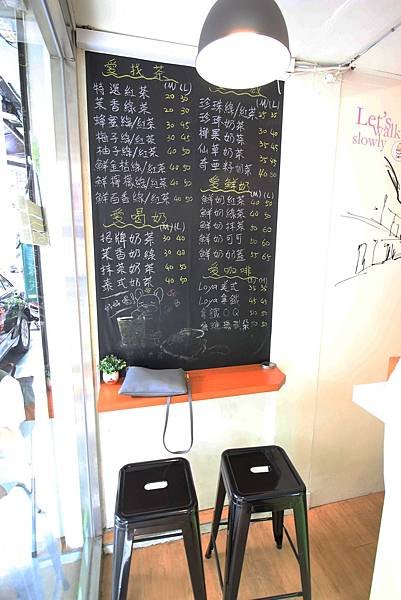 愛找茶
(M) (L)
特選紅茶 20 30
茉香綠茶 20 30
蜂蜜綠/紅茶 30 45
梅子綠/紅茶 40 50
柚子綠/紅茶 40 50
鮮金桔綠/紅茶 40 50
鮮檸檬綠/紅茶 40 50
鮮百香綠/紅茶 40 50
愛喝奶
(M) (L)
招牌奶茶 30 40
茉香奶綠 30 40
抹茶奶茶 40 50
泰式奶茶 40 50
(M) (L)
珍珠綠/紅茶 25 35
珍珠奶茶
椰果奶茶
仙草奶茶 35 45
奇亞籽奶茶
愛鮮奶
(M) (L)
鮮奶紅茶 40 50
鮮奶綠茶 40 50
鮮奶抹茶
鮮奶可可
鮮奶奶蓋
愛咖啡
Loya美式
Loya拿鐵
拿鐵QQ
焦糖瑪奇朵
Let's
walk
slowly